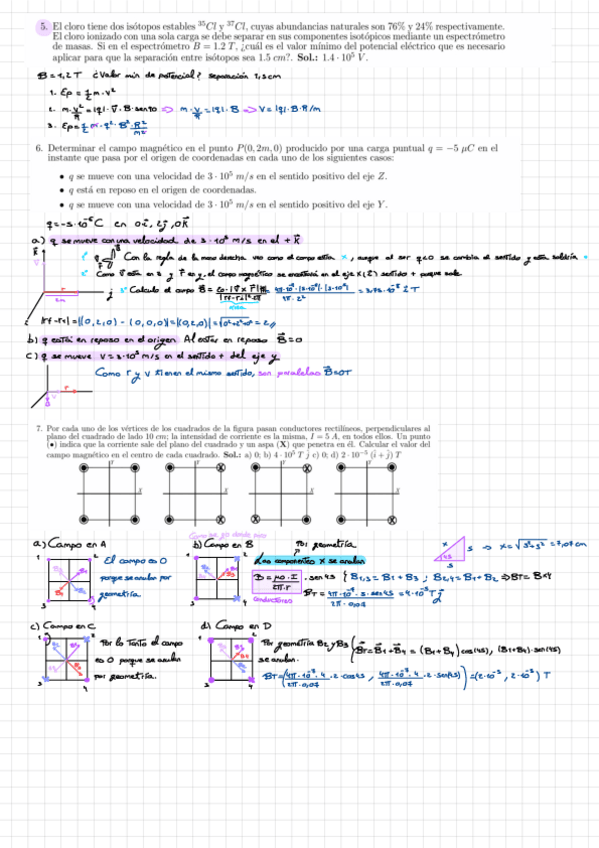 5. El cloro tiene dos isótopos estables ³⁵Cl y ³⁷Cl, cuyas abundancias naturales son 76% y 24% respectivamente.
El cloro ionizado con una sola carga se debe separar en sus componentes isotópicos mediante un espectrómetro
de masas. Si en el espectrómetro B = 1.2 T, ¿cuál es el valor mínimo del potencial eléctrico que es necesario
aplicar para que la separación entre isótopos sea 1.5 cm?. Sol.: 1.4·10⁵ V.
B = 1,2 T ¿Valor min de potencial? separación 1,5cm
1. Ep = 1/2 m·v²
2. m·v²/R = |q|·V·B·senθ => m·v/R = |q|·B => V = |q|·B·R/m
3. Ep = 1/2 m·q²·B²·R²/m²
6. Determinar el campo magnético en el punto P(0,2m,0) producido por una carga puntual q = −5 μC en el
instante que pasa por el origen de coordenadas en cada uno de los siguientes casos:
• q se mueve con una velocidad de 3·10⁵ m/s en el sentido positivo del eje Z.
• q está en reposo en el origen de coordenadas.
• q se mueve con una velocidad de 3·10⁵ m/s en el sentido positivo del eje Y.
q = -5·10⁻⁶C en 0i, 2j, 0k
a.) q se mueve con una velocidad de 3·10⁵ m/s en el + k
Con la regla de la mano derecha veo como el campo estaría x, aunque al ser q<0 se cambia el sentido y saldría
3º Calculo el campo
2m
|rf-ri| = |(0,2,0) - (0,0,0)| = |(0,2,0)| = √0²+2²+0² = 2
b) q está en reposo en el origen. Al estar en reposo B=0
c) q se mueve v=3·10⁵ m/s en el sentido + del eje y
Como r y v tienen el mismo sentido, son paralelas B=0T
7. Por cada uno de los vértices de los cuadrados de la figura pasan conductores rectilíneos, perpendiculares al
plano del cuadrado de lado 10 cm; la intensidad de corriente es la misma, I = 5 A, en todos ellos. Un punto
(•) indica que la corriente sale del plano del cuadrado y un aspa (X) que penetra en él. Calcular el valor del
campo magnético en el centro de cada cuadrado. Sol.: a) 0; b) 4·10⁵ T ĵ c) 0; d) 2·10⁻⁵ (î + ĵ) T
a) Campo en A
El campo es 0
porque se anulan por
geometría.
b) Campo en B
Por geometría
Las componentes x se anulan
B = μ0·I/2π·r · sen45 { B1,3 = B1+B3 ; B2,4 = B1+B2 => BT = B·4
conductores
BT = 4π·10⁻⁷·5·sen45/2π·0,07 = 4·10⁻⁵T j
x = √5²+5² = 7,07cm
c) Campo en C
Por lo tanto el campo
es 0 porque se anulan
por geometría.
d) Campo en D
Por geometría B2 y B3
se anulan.
BT = B1+B4 = (B1+B4) cos(45), (B1+B4)·sen(45)
BT = (4π·10⁻⁷·4/2π·0,07 ·2·cos45, 4π·10⁻⁷·4/2π·0,07 ·2·sen45) = (2·10⁻⁵, 2·10⁻⁵) T